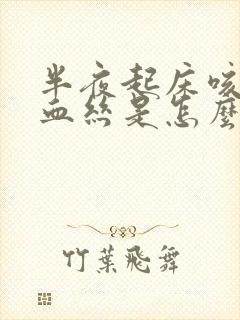 半夜起床咳
血絲是怎麼
竹葉飛舞